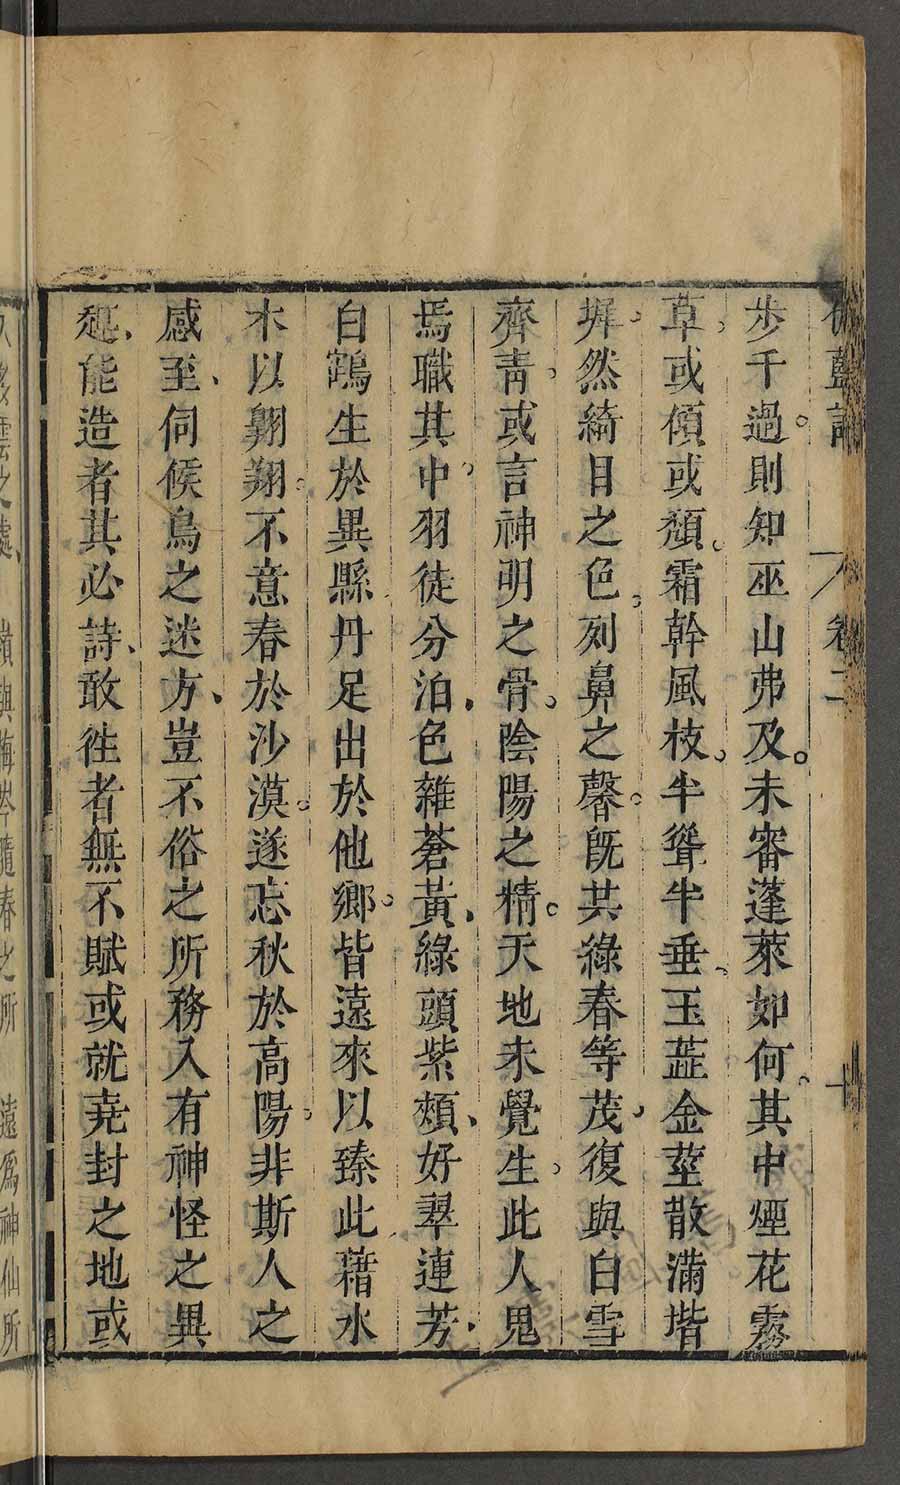 伽藍記 卷二 十
步千過。則知巫山弗及。未審蓬萊如何。其中煙花霧
草。或傾或頹。霜幹風枝。半聳半垂。玉蕋金莖。散滿堦
墀。然綺目之色。列鼻之馨。旣其綠春等茂。復與白雪
齊靑。或言神明之骨。陰陽之精。天地未覺生。此人鬼
焉職其中。羽徒分泊。色雜蒼黃。綠頭紫頰、好翠連芳、
白鶴生於異縣丹足出於他鄉。皆遠來以臻此藉水
木以翺翔。不意春於沙漠。遂忘秋於高陽。非斯人之
感至、伺候鳥之迷方、豈不俗之所務入有神怪之異
趣、能造者其必詩、敢徃者無不賦或就堯封之地或
之處、 嶺與梅岑隨春之所 遠爲神仙所